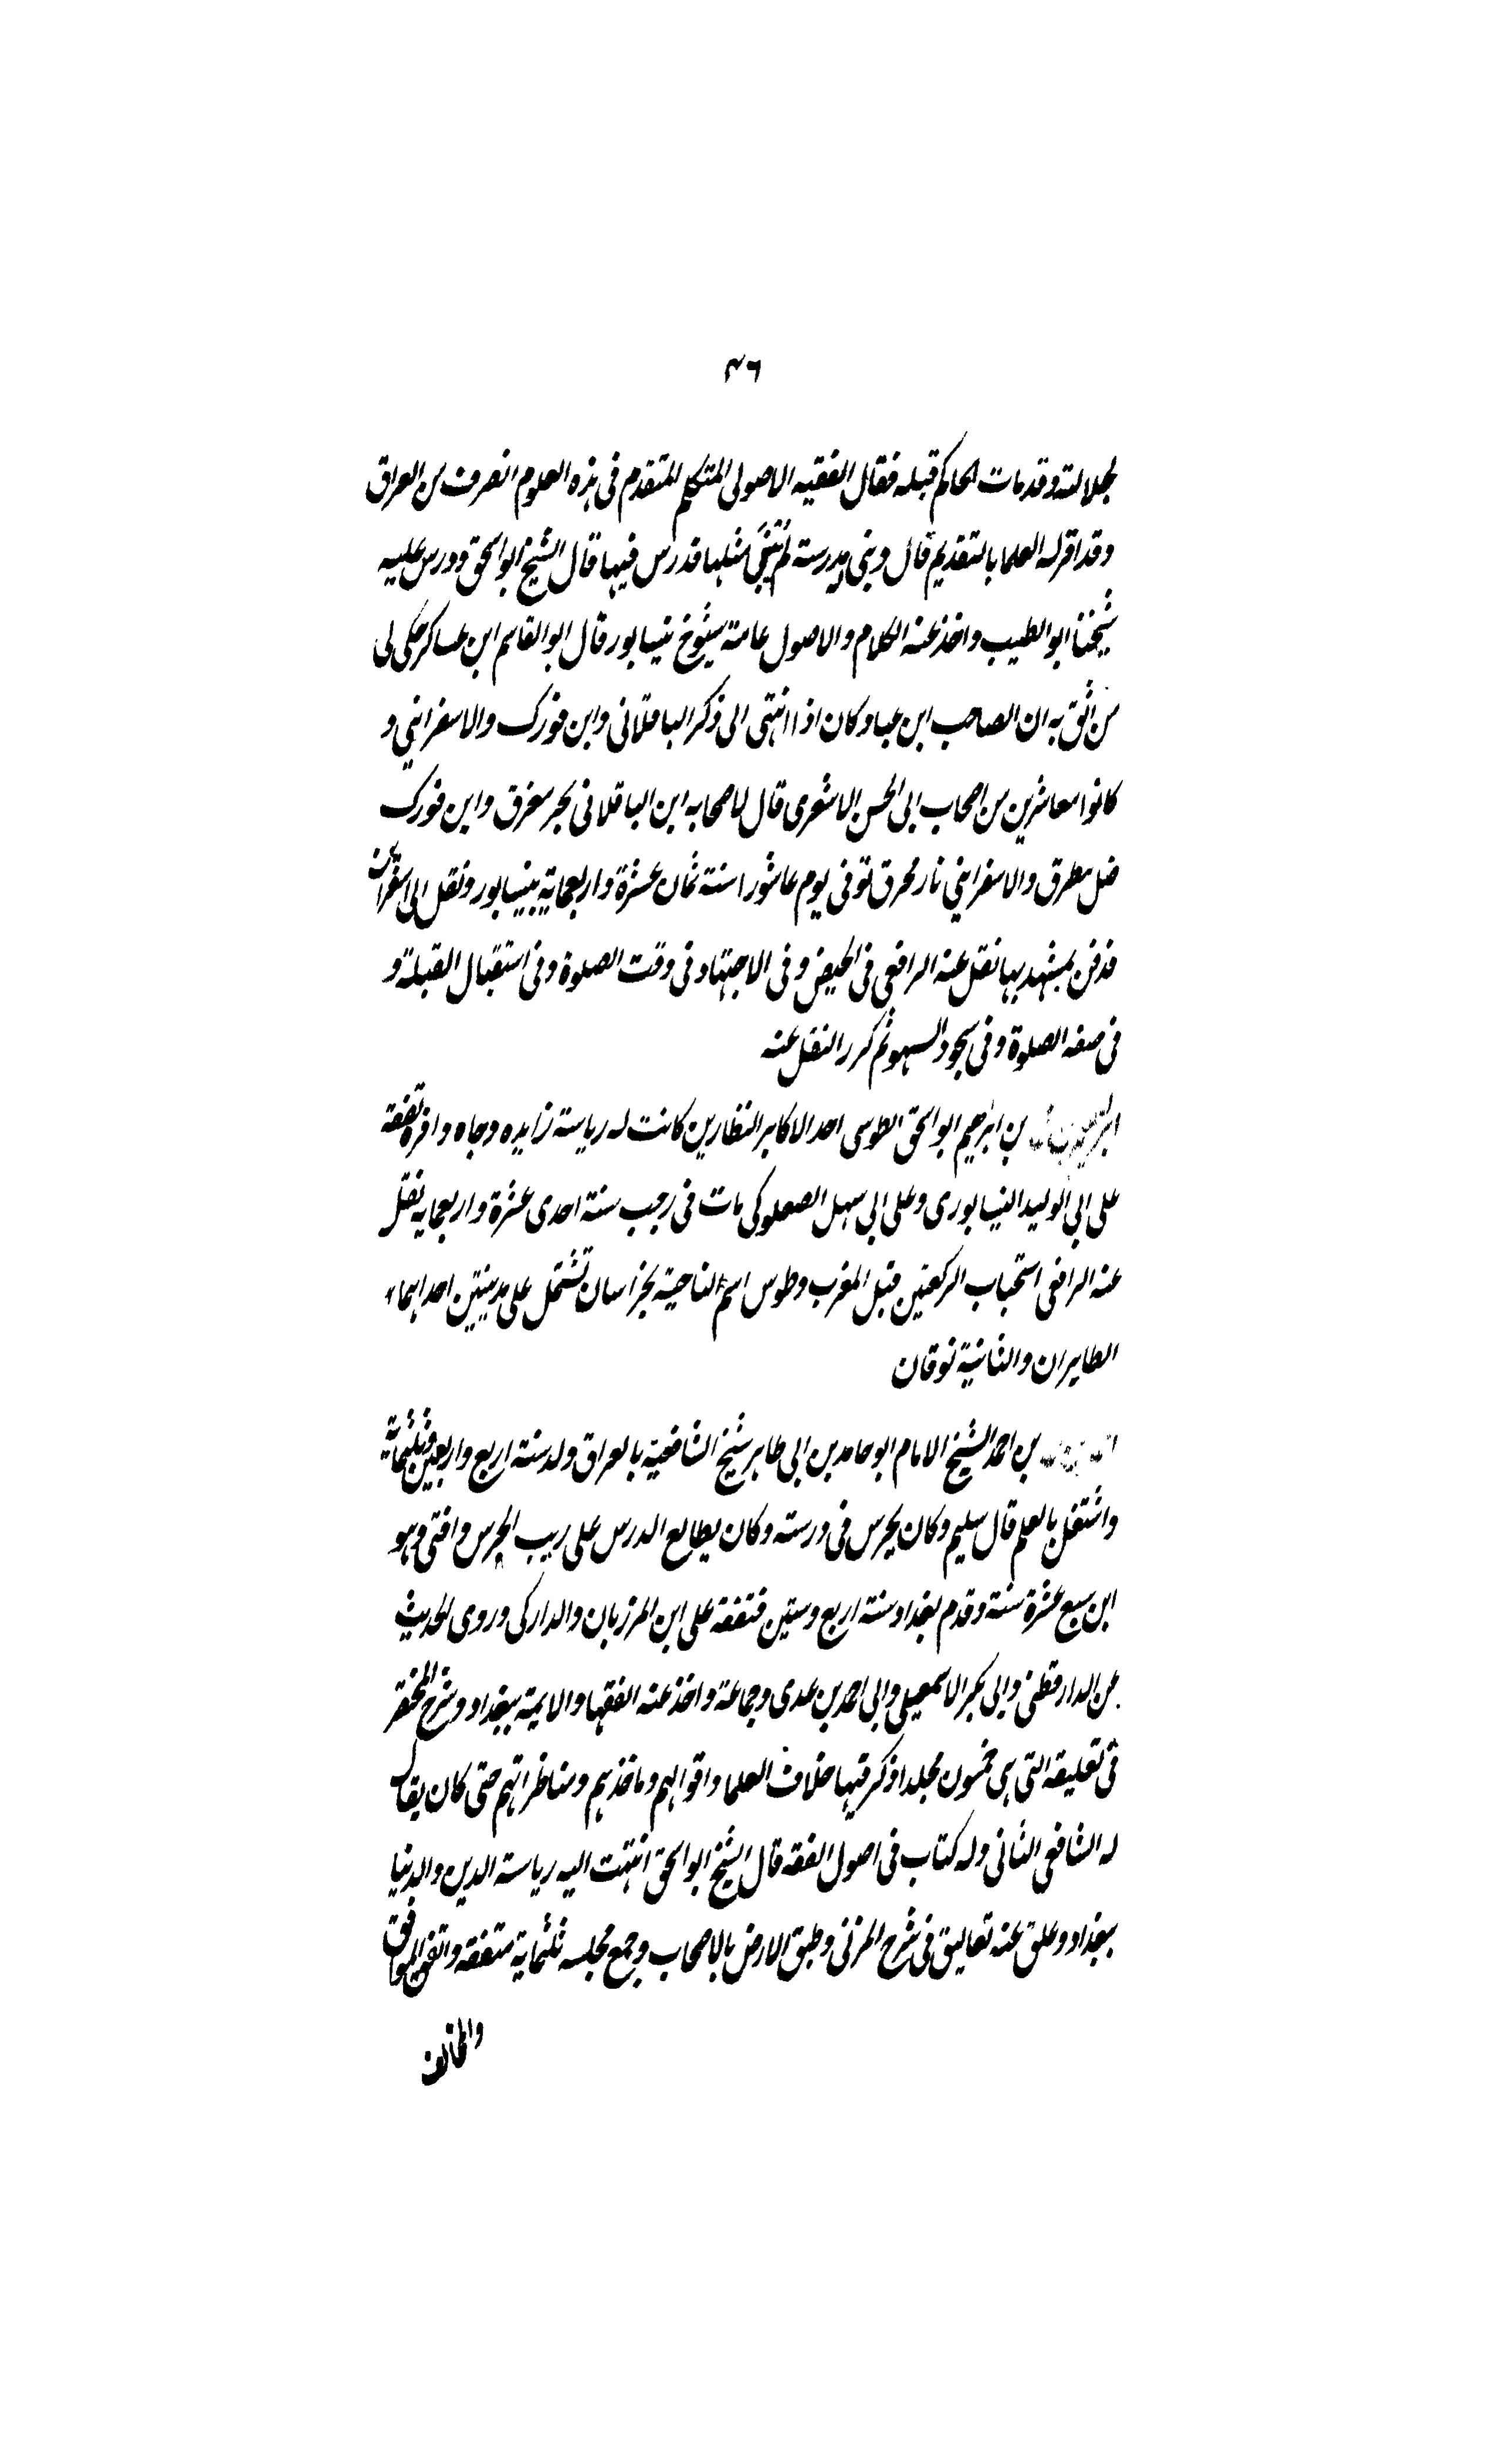 ٤٦
لجلالته وقد مات الحاكم قبله فقال الفقيه الاصولى المتكلم المتقدم فى هذه العلوم انصرف من العراق
وقد اقر له العلما بالتقديم قال وبنى مدرسة لم يُبْنَ مثلها فدرس فيها قال الشيخ ابو اسحق ودرس عليه
شيخنا ابو الطيب واخذ عنه الكلام والاصول عامة شيوخ نيسابور قال ابو القاسم ابن عساكر حكى لى
من اثق به ان الصاحب ابن عباد كان اذا انتهى الى ذكر الباقلانى وابن فورك والاسفراينى و
كانوا معاشرين من اصحاب ابى الحسن الاشعرى قال لاصحابه ابن الباقلانى بحر مغرق وابن فورك
صل مطرق والاسفراينى نار محرق توفى يوم عاشورا سنة ثمان عشرة واربعماية بنيسابور ونقل الى اسفراين
فدفن بمشهد بها نقل عنه الرافعى فى الحيض وفى الاجتهاد فى وقت الصلوة وفى استقبال القبلة و
فى صفه الصلوة وفى سجود السهو ثم كرر النقل عنه
بن ابرهيم ابو اسحق الطوسى احد الاكابر النظارين كانت له رياسة زايده وجاه وافر تفقه
على ابى الوليد النيسابورى وعلى ابى سهل الصعلوكى مات فى رجب سنة احدى عشرة واربعمايه نقل
عنه الرافعى استحباب الركعتين قبل المغرب وطوس اسم لناحية بخراسان تشتمل على مدينتين احداهما
الطابران والثانية نوقان
بن احمد الشيخ الامام ابو حامد بن ابى طاهر شيخ الشافعية بالعراق ولد سنة اربع واربعين وثلثماية
واشتغل بالعلم قال سليم وكان يحرس فى درسته وكان يطالع الدرس على زيت الحرس وافتى وهو
ابن سبع عشرة سنة وقدم بغداد سنة اربع وستين فتفقه على ابن المرزبان والداركى وروى الحديث
عن الدارقطنى وابى بكر الاسمعيلى وابى احمد بن عدى وجماعة واخذ عنه الفقها والايمة ببغداد وشرح المختصر
فى تعليقه التى هى خمسون مجلدا ذكر فيها خلاف العلما واقوالهم وماخذهم ومناظراتهم حتى كان يقال
له الشافعى الثانى وله كتاب فى اصول الفقه قال الشيخ ابو اسحق انتهت اليه رياسة الدين والدنيا
ببغداد وعلق عنه تعاليق فى شرح المزنى وطبق الارض بالاصحاب وجمع مجلسه ثلثماية متفقه واتفق الموافق
والمخالف